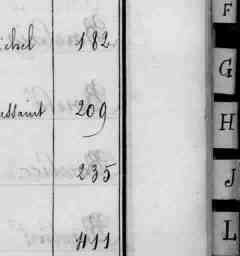 ichel 182
ussaint 209
235
411
F
G
H
J
L